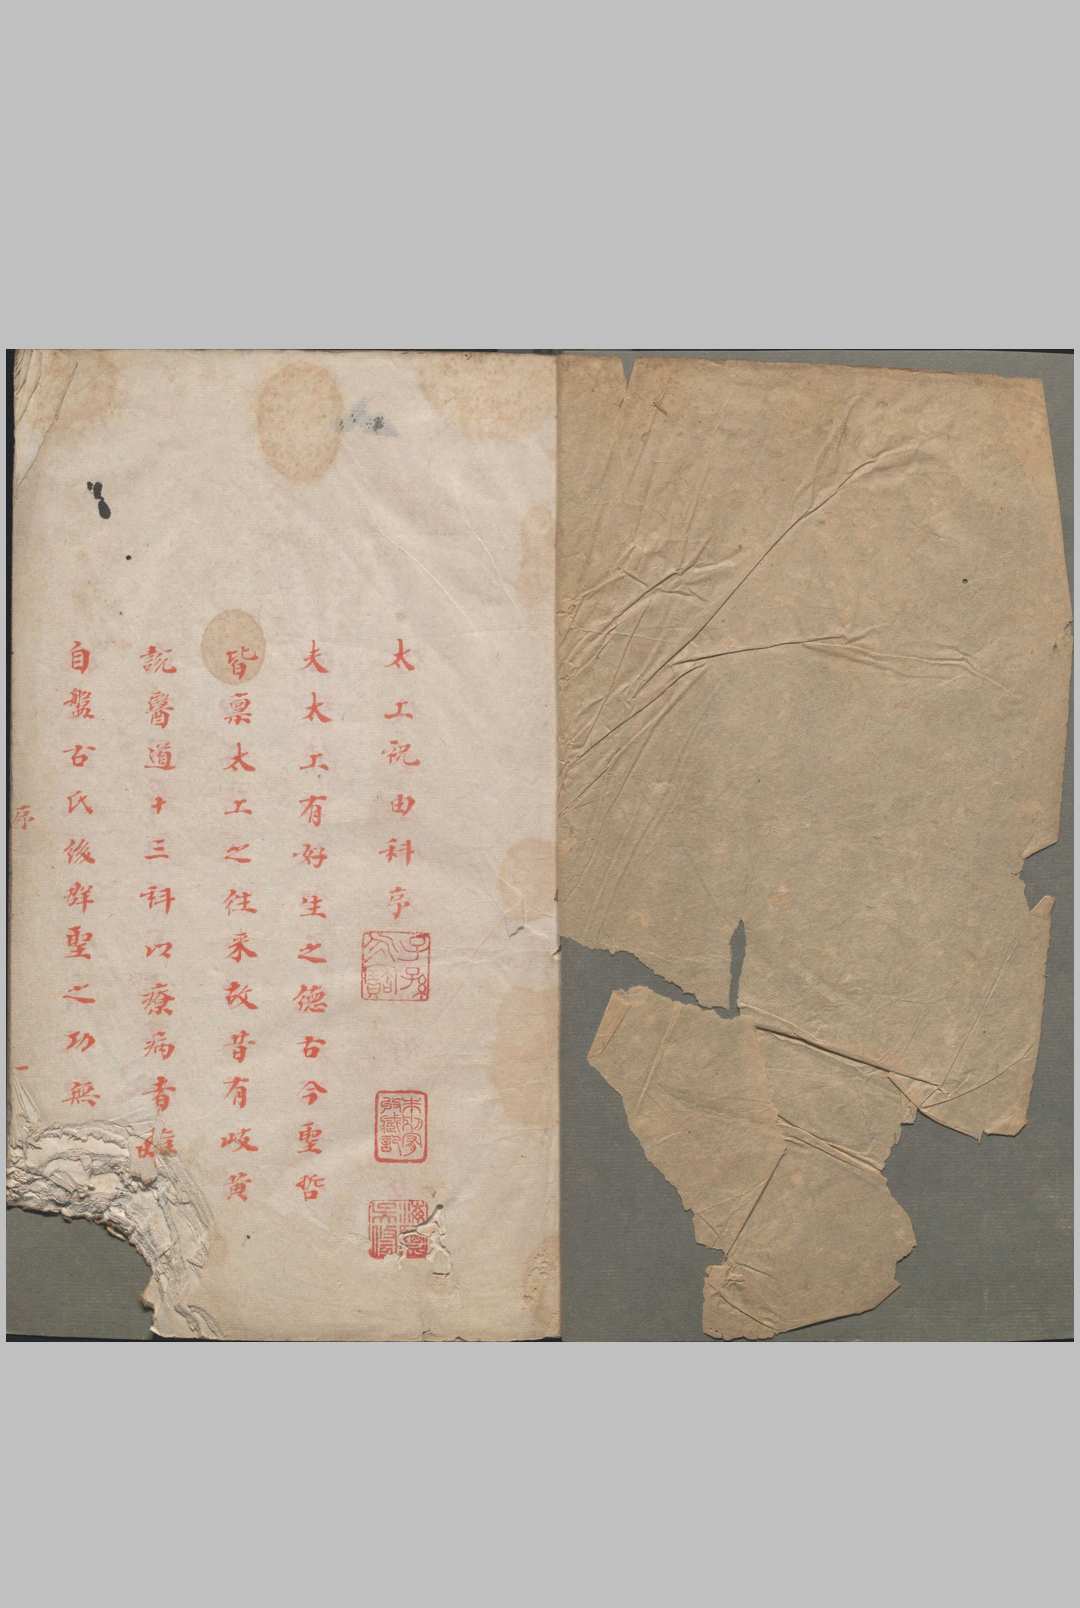 太上祝由科序
朱別宥收藏記
夫太上有好生之德古今聖哲
皆稟太上之往来故昔有岐黄
說醫道十三科以療病者雖
自盤古氏後群聖之功無
序
一